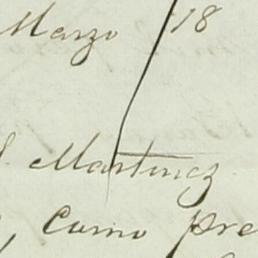 Marzo /18
Martinez
, Como pre